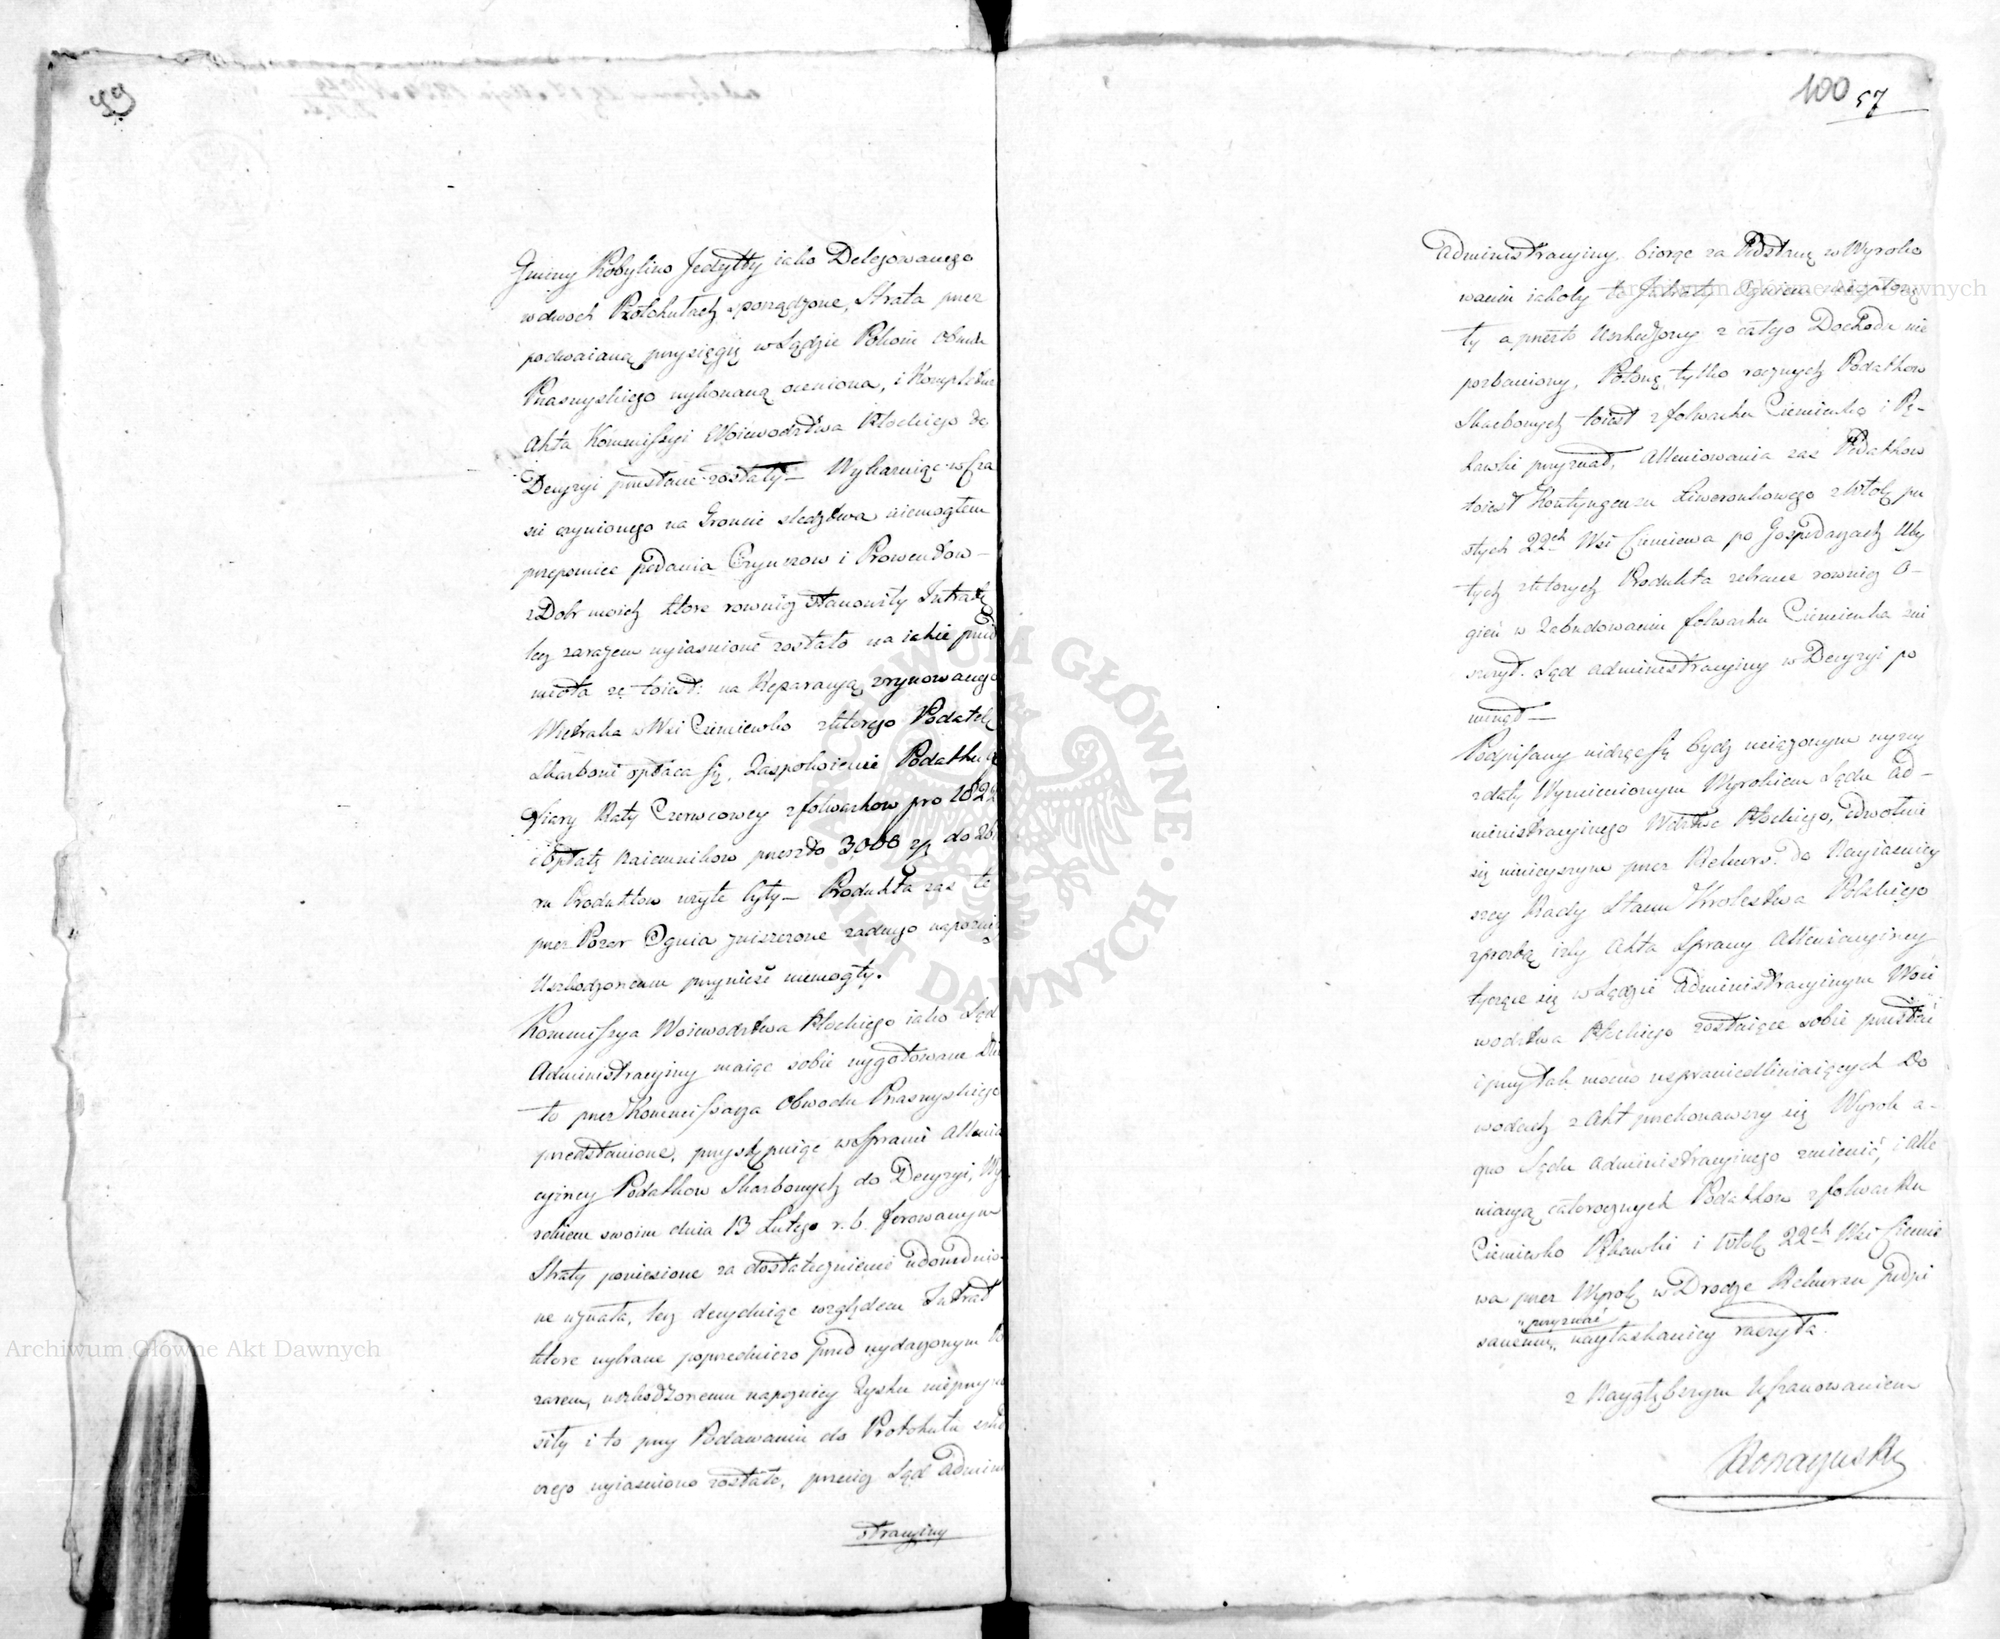 99
Gminy Kobylino Jedytty iako Delegowanego
w dwoch Protokułach sporządzone, Strata przez
podwaianą przysięgę w Sądzie Pokoiu Obwodu
Prasnyskiego wykonaną oceniona, i Kompletne
Akta Kommissyi Woiewodztwa Płockiego do
Decyzyi przesłane zostały — Wykazuiąc w Cza
sie czynionego na Gruncie sledztwa niemogłem
przepomniec podania Czynszow i Prowentow
z Dobr moich ktore rowniez stanowiły Intratę
lecz zarazem wyiasnione zostało na iakie przed
miota są toiest: na Reparacyą zrynowanego
Wiatraka w Wsi Ciemiewko z ktorego Podatek
Skarbowi opłaca się, Zaspokoienie Podatku O
fiary Raty Czerwcowey z folwarkow pro 1822
i opłatę naiemnikow przeszło 3,000 zł do zbio
ru Produktow uzyte były — Produkta zas te
przez Pozar Ognia zniszczone zadnego
Uszkodzonemu przyniesc niemogły.
Kommissya Woiewodztwa Płockiego iako Sąd
Administracyiny maiąc sobie wygotowane
to przez Kommissarza Obwodu Prasnyskiego
przedstawione, przystępuiąc w Sprawie Allewia
cyiney Podatkow Skarbowych do Decyzyi, Wy
rokiem swoim dnia 13 Lutego r. b. ferowanym
Straty poniesione za dostatecznienie udowodnio
ne uznała, lecz decyduiąc względem Intrat
ktore wybrane poprzedniczo przed wydarzonym Po
zarem, uszkodzonemu zysku nieprzyno
siły i to przy Podawaniu do Protokułu
wyiasniono zostało, przeciez Sąd Admini
stracyiny
100 57
Administracyiny biorąc za Podstawę w Wyroko
waniu iakoby te Intraty Ogniem
ty a przeto Uszkodzony z całego Dochodu nie
pozbawiony, Połowę tylko rocznych Podatkow
Skarbowych toiest z folwarku Ciemiewko i Pę-
kawki przyznał, Allewiowania zas Podatkow
toiest Kontyngensu Liwerunkowego z Wtok pu
stych 22ch Wsi Ciemiewa po Gospodarzach Uby
tych z ktorych Produkta zebrane rowniez O-
gień w Zabudowaniu folwarku Ciemiewka zni
szczył. Sąd Administracyiny w Decyzyi po
minął —
Podpisany widząc się bydz uciązonym wyzy
z daty Wymienionym Wyrokiem Sądu Ad-
ministracyinego Wdztwa Płockiego, odwołuie
się ninieyszym przez Rekurs do Nayiasniey
szey Rady Stanu Krolestwa Polskiego
z prosbą izby Akta Sprawy Allewiacyiney
tyczące się w Sądzie Administracyinym Woie
wodztwa Płockiego zostaiące sobie przesłać
i przy tak mocno usprawiedliwiaiących Do
wodach z Akt przekonawszy się Wyrok a-
quo Sądu Administracyinego zmienić, i Alle
wiacyą całorocznych Podatkow z folwarku
Ciemiewko Pękawki i Włok 22ch Wsi Ciemie
wa przez Wyrok w Drodze Rekursu Podpi
sanemu, przyznać nayłaskawiey raczyła.
z Naygłębszym Uszanowaniem